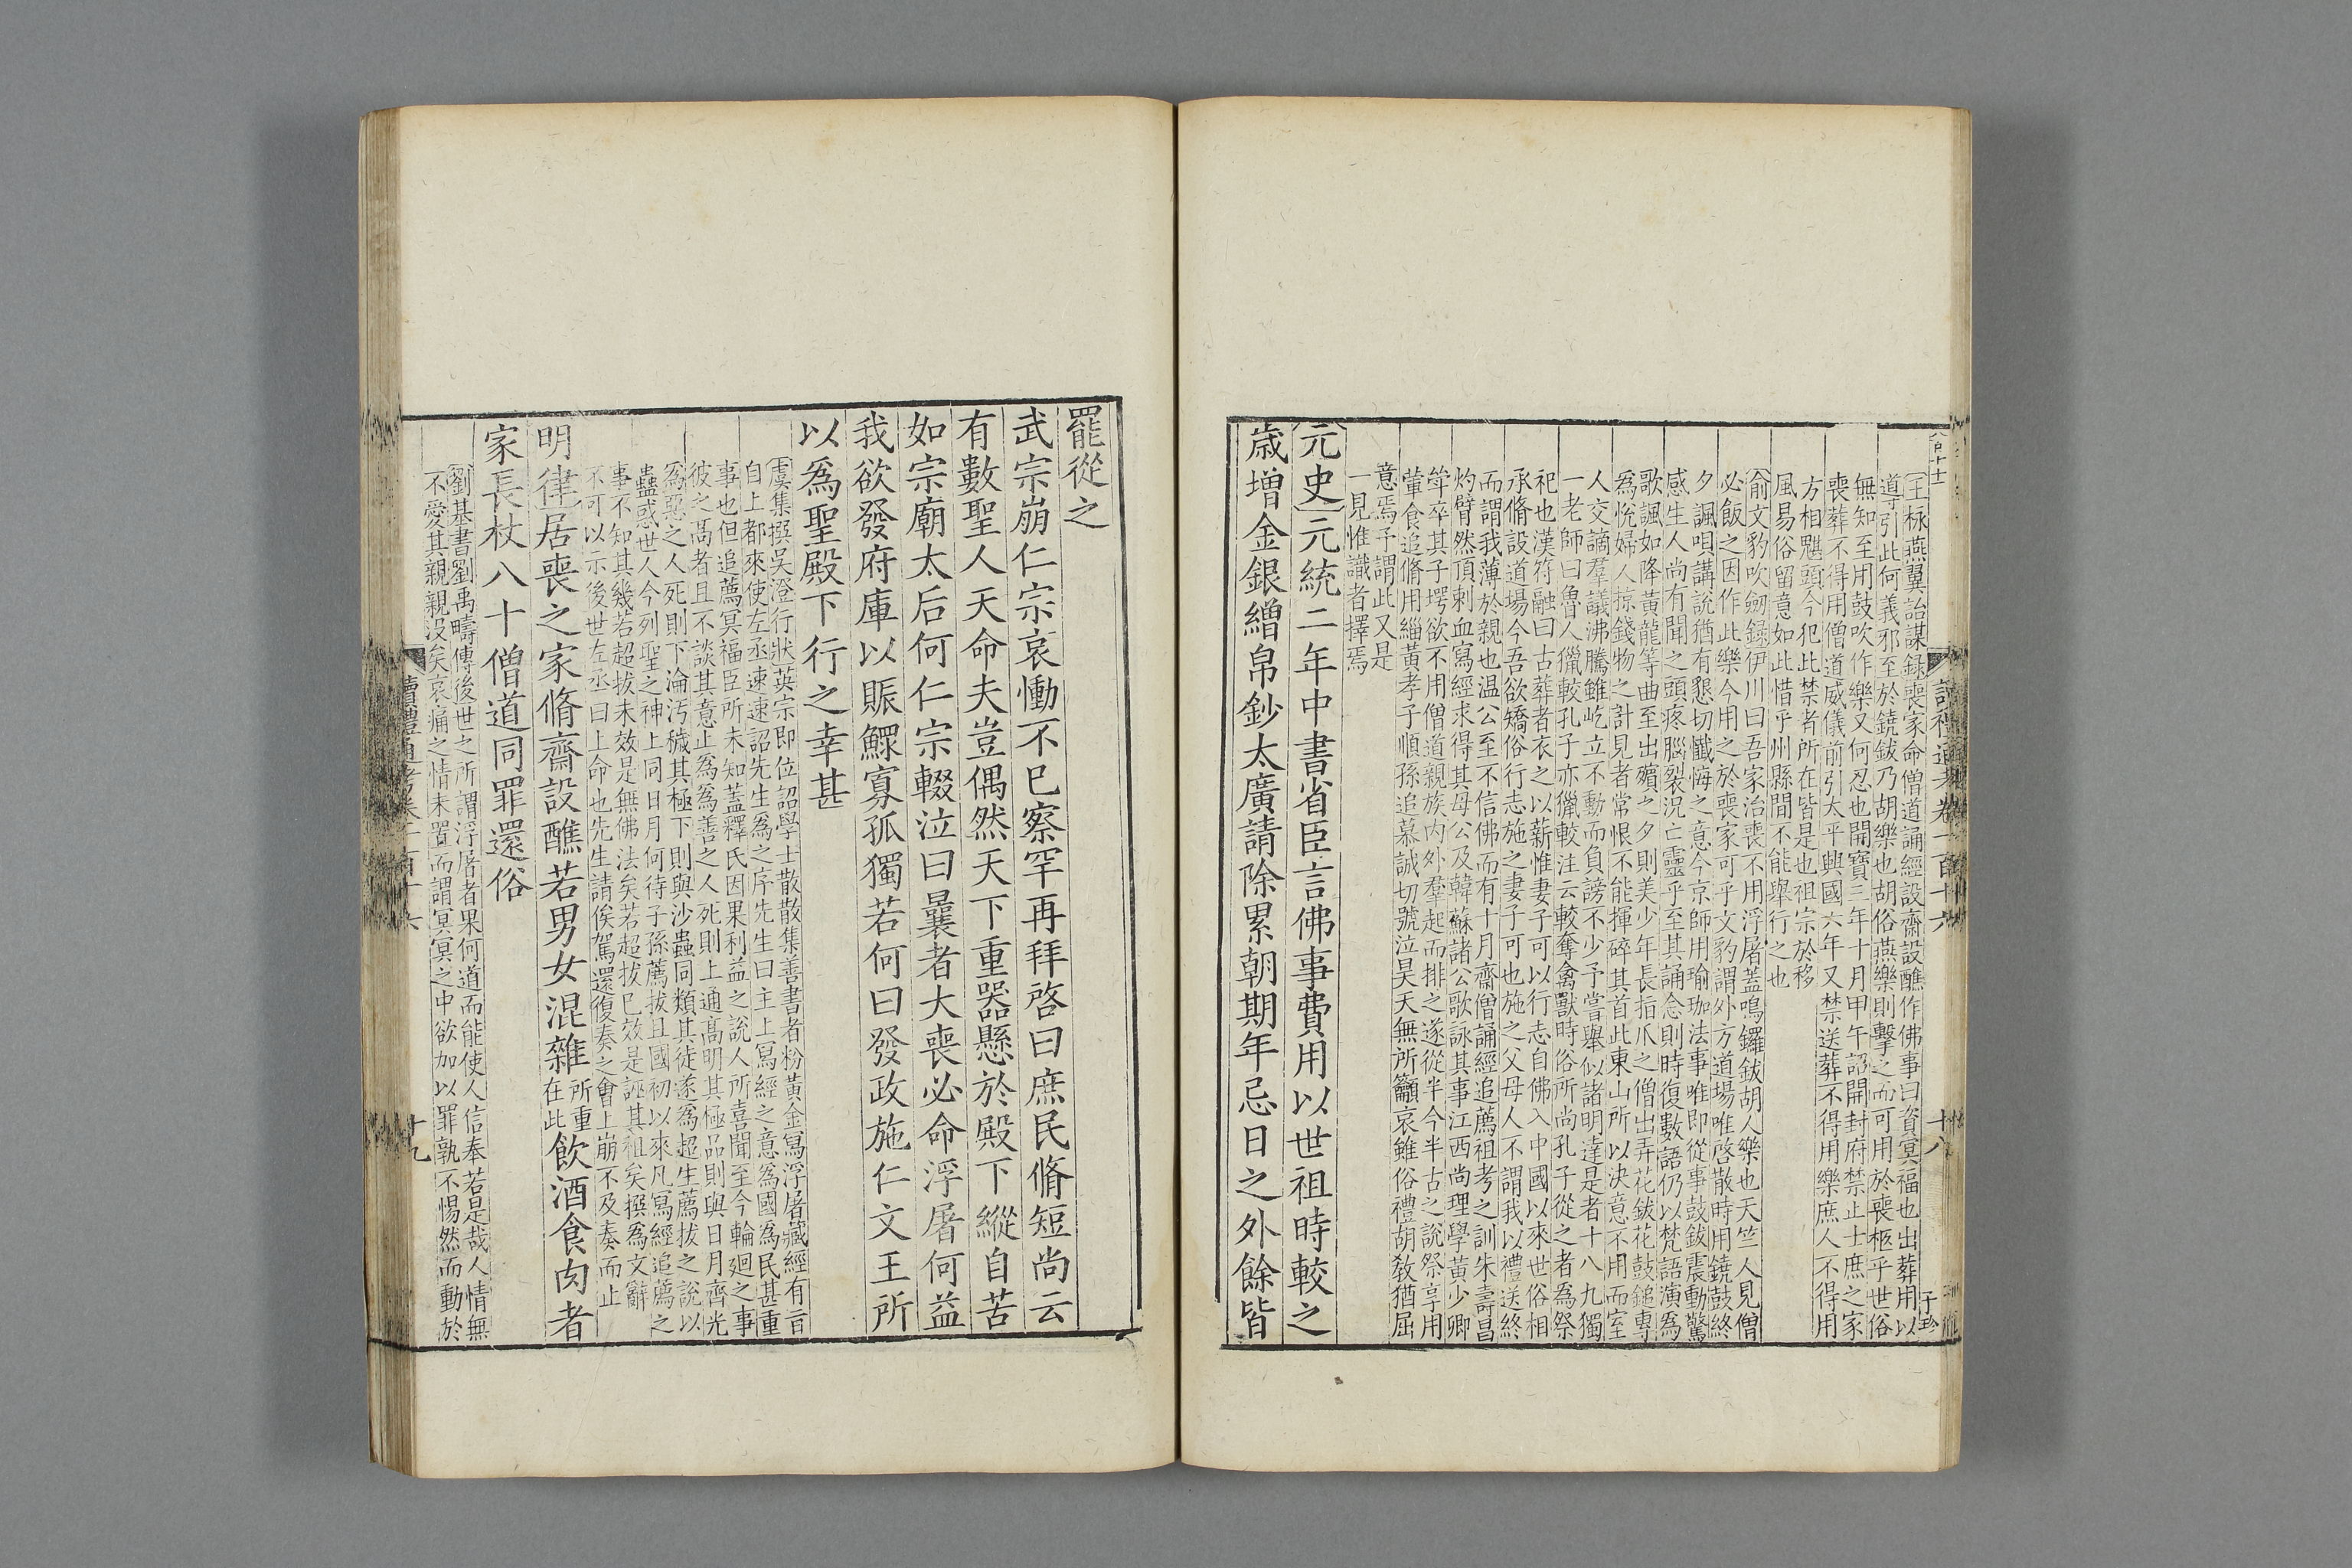 王栐燕翼詒謀録喪家命僧道誦經設齋設醮作佛事曰資冥福也出葬用以
道引此何義邪至於鐃鈸乃胡樂也胡俗燕樂則擊之而可用於喪柩乎世俗
無知至用鼓吹作樂又何忍也開寶三年十月甲午詔開封府禁止士庶之家
喪葬不得用僧道威儀前引太平興國六年又禁送葬不得用樂庶人不得用
方相魌頭今犯此禁者所在皆是也祖宗於移
風易俗留意如此惜乎州縣間不能舉行之也
俞文豹吹劒録伊川曰吾家治喪不用浮屠蓋鳴鑼鈸胡人樂也天竺人見僧
必飯之因作此樂今用之於喪家可乎文豹謂外方道場唯啓散時用鐃鼓終
夕諷唄講說猶有懇切懺悔之意今京師用瑜珈法事唯即從事鼓鈸震動驚
感生人尚有聞之頭疼腦裂況亡靈乎至其誦念則時復數語仍以梵語演為
歌諷如降黃龍等曲至出殯之夕則美少年長指爪之僧出弄花鈸花鼓鎚專
爲悅婦人掠錢物之計見者常恨不能揮碎其首此東山所以決意不用而室
人交謫羣議沸騰雖屹立不動而負謗不少予嘗舉似諸明達是者十八九獨
一老師曰魯人獵較孔子亦獵較注云較奪禽獸時俗所尚孔子從之者為祭
祀也漢符融曰古葬者衣之以薪惟妻子可以行志自佛入中國以來世俗相
承脩設道場今吾欲矯俗行志施之妻子可也施之父母人不謂我以禮送終
而謂我薄於親也温公至不信佛而有十月齋僧誦經追薦祖考之訓朱壽昌
灼臂然頂刺血寫經求得其母公及韓蘇諸公歌詠其事江西尚理學黃少卿
犖卒其子堮欲不用僧道親族內外羣起而排之遂從半今半古之說祭享用
葷食追脩用緇黃孝子順孫追慕誠切號泣昊天無所籲哀雖俗禮胡教猶屈
意焉予謂此又是
一見惟識者擇焉
元史元統二年中書省臣言佛事費用以世祖時較之
歲增金銀繒帛鈔太廣請除累朝期年忌日之外餘皆
罷從之
武宗崩仁宗哀慟不已察罕再拜啓曰庶民脩短尚云
有數聖人天命夫豈偶然天下重器懸於殿下縱自苦
如宗廟太后何仁宗輟泣曰曩者大喪必命浮屠何益
我欲發府庫以賑鰥寡孤獨若何曰發政施仁文王所
以爲聖殿下行之幸甚
虞集撰吳澄行狀英宗即位詔學士散散集善書者粉黃金寫浮屠藏經有旨
自上都來使左丞速速詔先生為之序先生曰主上寫經之意為國為民甚重
事也但追薦冥福臣所未知蓋釋氏因果利益之說人所喜聞至今輪廻之事
彼之高者且不談其意止為為善之人死則上通高明其極品則與日月齊光
為惡之人死則下淪汚穢其極下則與沙蟲同類其徒遂為超生薦拔之說以
蠱惑世人今列聖之神上同日月何待子孫薦拔且國初以來凡寫經追薦之
事不知其幾若超拔未效是無佛法矣若超拔已效是誣其祖矣撰為文辭
不可以示後世左丞曰上命也先生請俟駕還復奏之會上崩不及奏而止
明律居喪之家脩齋設醮若男女混雜所重在此飲酒食肉者
家長杖八十僧道同罪還俗
劉基書劉禹疇傳後世之所謂浮屠者果何道而能使人信奉若是哉人情無
不愛其親親没矣哀痛之情未置而謂冥冥之中欲加以罪孰不惕然而動於